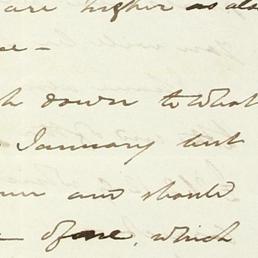 are higher as al
se —
down to what
January last
and should
— of one, which